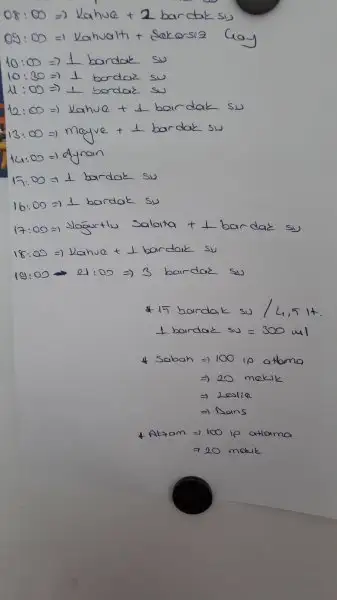 08:00 => Kahve + 2 bardak su
09:00 => Kahvaltı + Şekersiz Çay
10:00 => 1 bardak su
10:30 => 1 bardak su
11:00 => 1 bardak su
12:00 => Kahve + 1 bardak su
13:00 => meyve + 1 bardak su
14:00 => Ayran
15:00 => 1 bardak su
16:00 => 1 bardak su
17:00 => Yoğurtlu Salata + 1 bardak su
18:00 => Kahve + 1 bardak su
19:00 → 21:00 => 3 bardak su
* 15 bardak su / 4,5 lt.
1 bardak su = 300 ml
* Sabah => 100 ip atlama
=> 20 mekik
=> Leslie
=> Dans
* Akşam => 100 ip atlama
=> 20 mekik